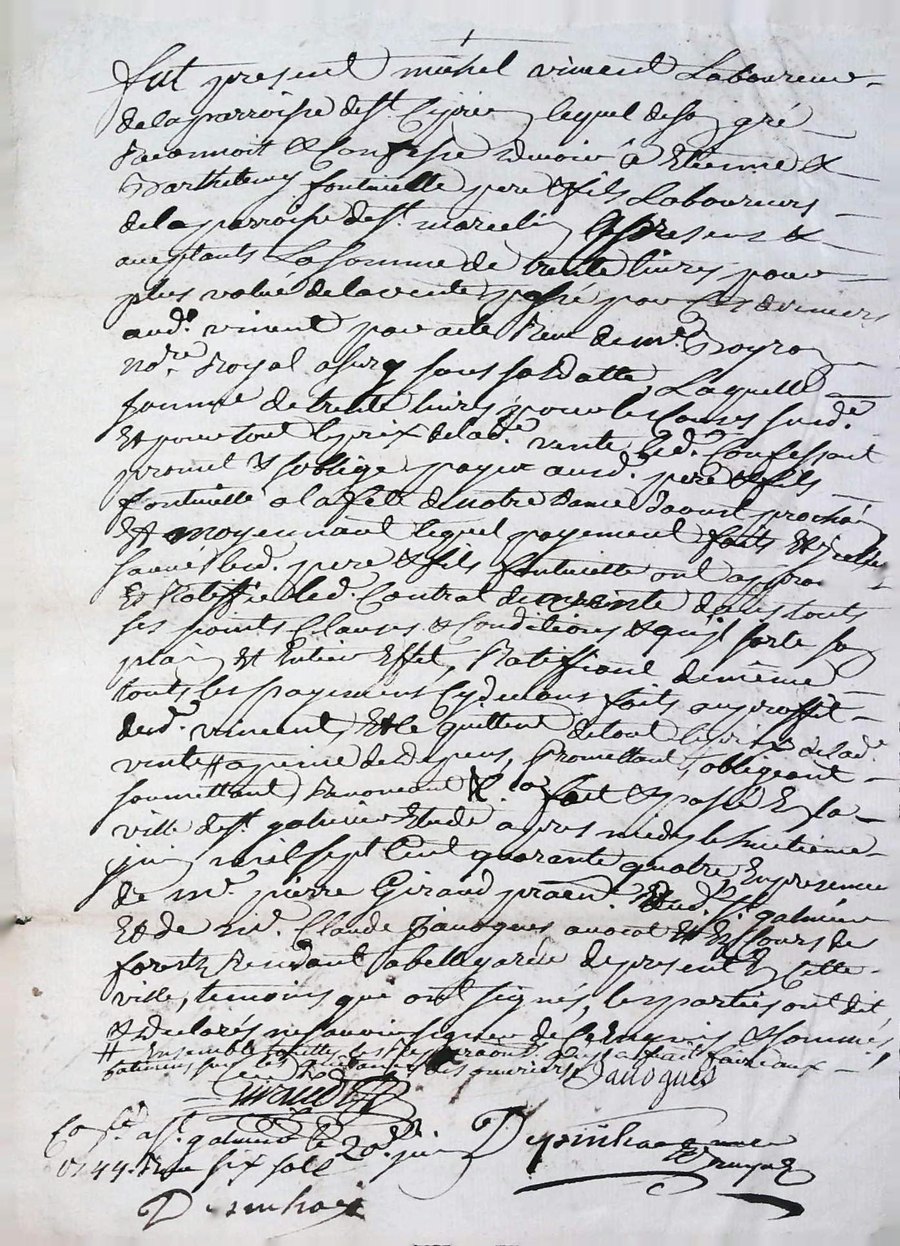 fut present michel viment Laboureur
de la parroisse de st. Ciprien lequel de son gré
Reconnoit & Confesse devoir à Etienne &
Barthelemy fontvielle pere & fils Laboureurs
de la parroisse de st. marcelin presens &
aceptants La somme de trente livres pour
plus valüe de la vente passé par Ces derniers
aud. viment par acte Reçu de me.
nore. Royal a sury sous sa datte, Laquelle
somme de trente livres pour les Causes susd.
Et pour tout le prix de lad. vente led. Confessant
promet & s'oblige payer ausd. pere & fils
fontvielle a la fete de notre dame d'aoust prochain
Et moyennant lequel payement faits Et
lesd. pere & fils fontvielle ont
Et Ratiffie led. Contrat de vente dans touts
ses points Clauses & Conditions & qu'il sorte son
plain Et Entier Effet, Ratiffiant de même
touts les payements cydevans faits au proffit
dud. viment, Et le quittent de tout le prix de lad.
vente # a peine de depens, promettant, obligeant
soumettant, Renonceant &. fait & passé En la
ville de st. galmier Etude apres midy le huitieme
juin mil sept Cent quarante quatre En presence
de me. pierre Giraud dud. st. galmier
Et de Claude Janogues avocat Es Cours de
forestz Residant a bellegarde de present En Cette
ville, temoins que ont signés, les parties ont dit
& declarés ne savoir signer de Ce Enquis & sommés,
# Ensemble touttes les Reparaons.
batimens par les des ouvriers
Giraud Janogues
Con.lé a st. galmier le 20e. juin Depinhac
1744. Reçu six sols
Depinhac